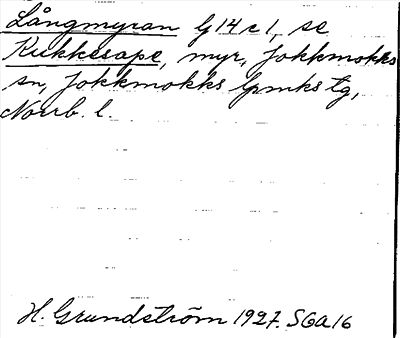 Långmyran G14c1, se
Kukkesape, myr, Jokkmokks
sn, Jokkmokks lpmks tg,
Norrb. l.
H. Grundström 1927. SGA16